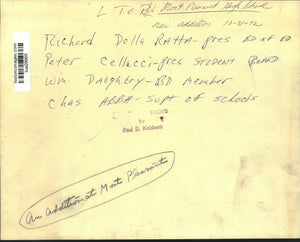 L To R Mont Pleasant High School
new addition 10-2-72
Richard Della RATTA-pres BD of ED.
Peter Cellucci-pres STUDENT BOARD
Wm. Daughtry-BD member
Chas ABBA-Supt of schools
PHOTO
by
Paul D. Kniskern
An Addition at Mont Pleasant